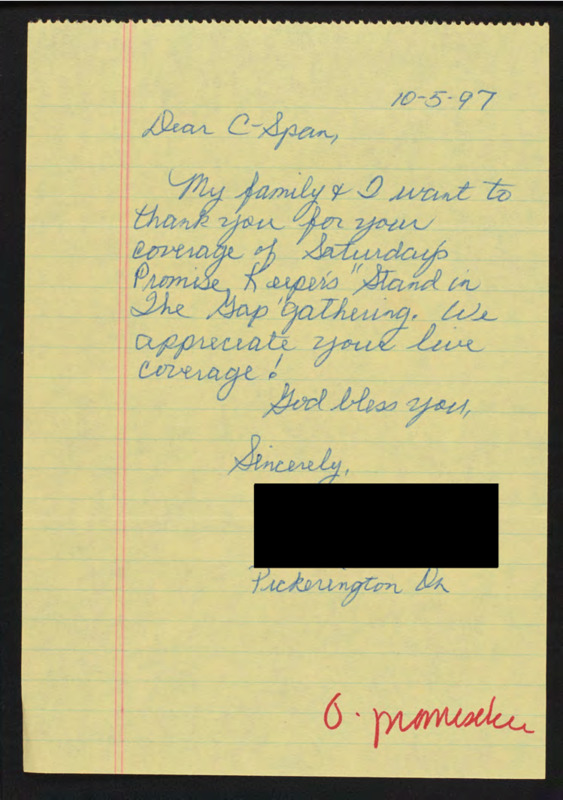 10-5-97
Dear C-Span,
My family & I want to
thank you for your
coverage of Saturday's
Promise Keeper's "Stand in
The Gap" gathering. We
appreciate your live
coverage!
God bless you,
Sincerely,
Pickerington Oh
O.